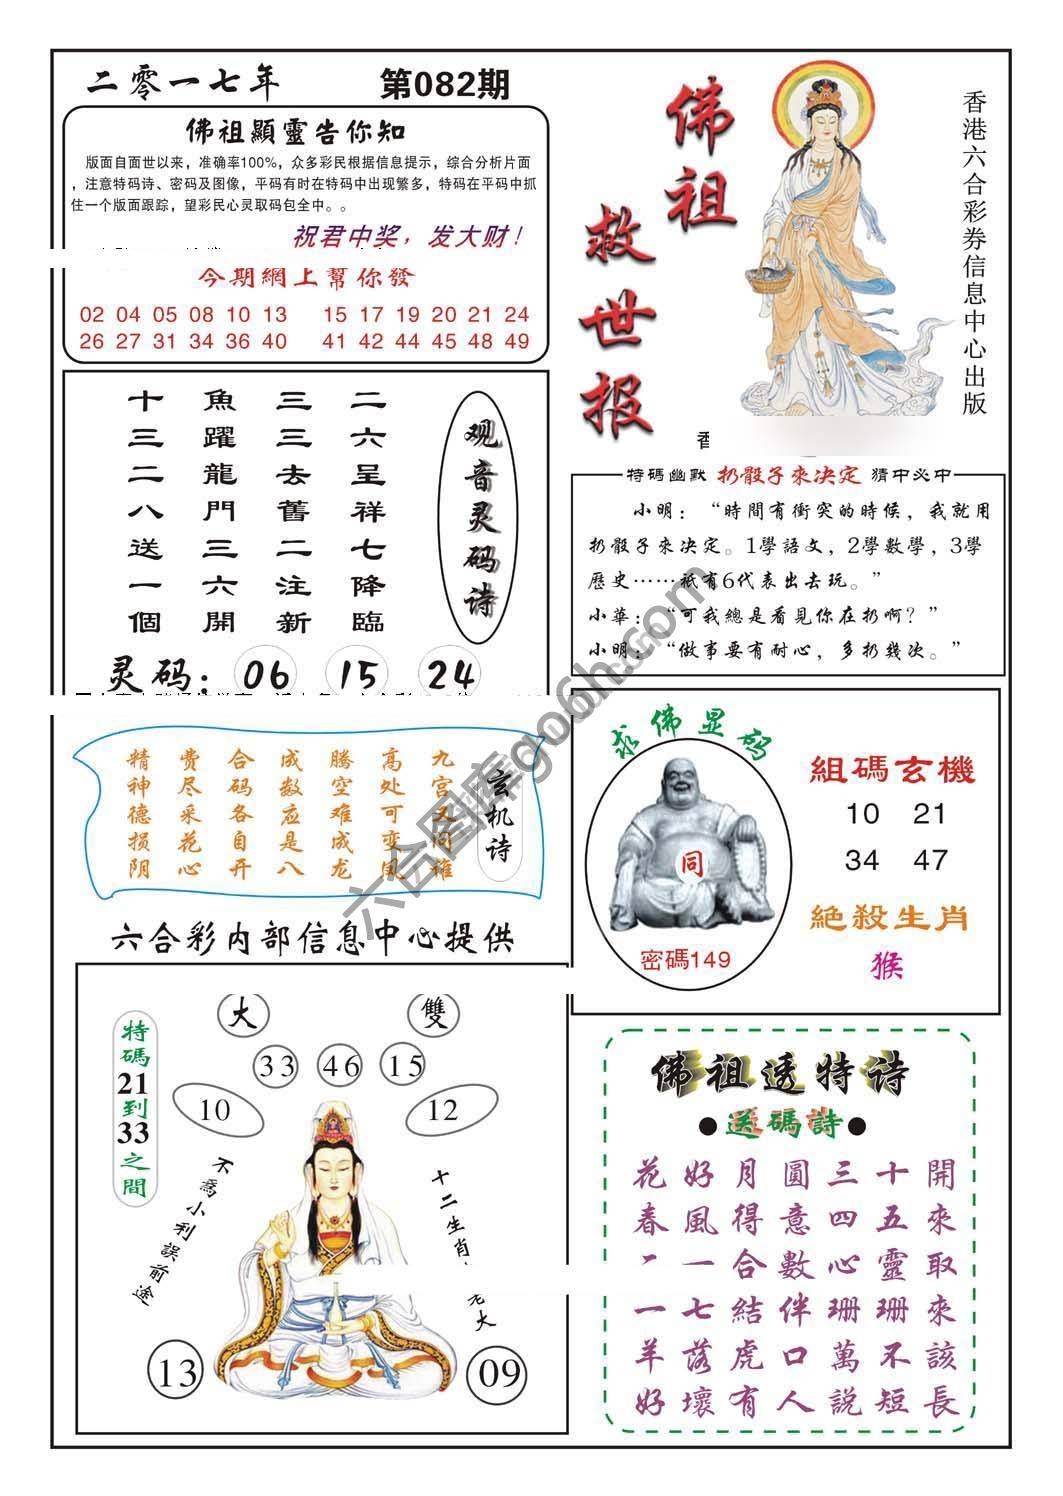 二零一七年
第082期
佛祖顯靈告你知
版面自面世以来，准确率100%，众多彩民根据信息提示，综合分析片面
，注意特码诗、密码及图像，平码有时在特码中出现繁多，特码在平码中抓
住一个版面跟踪，望彩民心灵取码包全中。。
祝君中奖，发大财！
今期網上幫你發
02 04 05 08 10 13 15 17 19 20 21 24
26 27 31 34 36 40 41 42 44 45 48 49
佛祖救世报
香港六合彩券信息中心出版
观音灵码诗
二六呈祥七降臨
三三去舊二注新
魚躍龍門三六開
十三二八送一個
灵码：06 15 24
特碼幽默 扔骰子來决定 猜中必中
小明：“時間有衝突的時候，我就用
扔骰子來决定。1學語文，2學數學，3學
歷史……祇有6代表出去玩。”
小華：“可我總是看見你在扔啊？”
小明：“做事要有耐心，多扔幾次。”
玄机诗
九宫又问雄
高处可变凤
腾空难成龙
成数应是八
合码各自开
费尽采花心
精神德损阴
六合彩内部信息中心提供
求佛显码
同
密碼149
組碼玄機
10 21
34 47
絶殺生肖
猴
大
雙
33 46 15
10
12
特碼21到33之間
不爲小利誤前途
十二生肖
老大
13
09
佛祖透特诗
●送碼詩●
花好月圓三十開
春風得意四五來
二一合數心靈取
一七結伴珊珊來
羊落虎口萬不該
好壞有人説短長
六合图库go6h.com